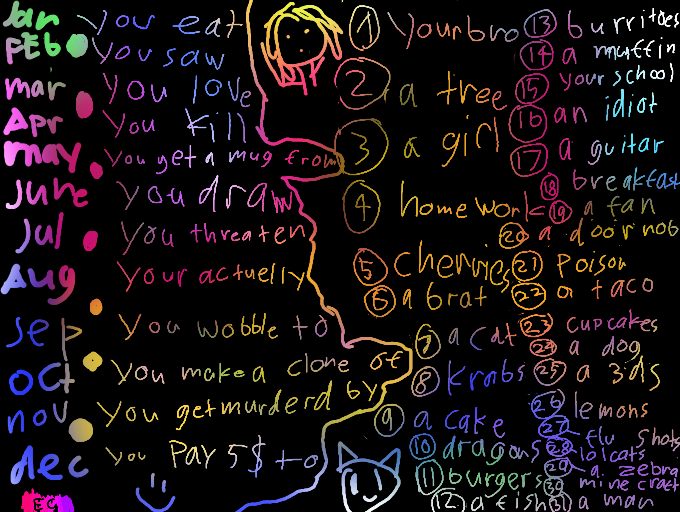 Jan You eat
FEB You saw
mar You love
Apr You kill
may You get a mug from
June You draw
Jul You threaten
Aug Your actuelly
sep You wobble to
oct You make a clone of
nov You getmurderd by
dec you PAY 5$ to
1 Your bro
2 a tree
3 a girl
4 homework
5 cherries
6 a brat
7 a cat
8 krabs
9 a cake
10 dragons
11 burgers
12 a fish
13 burritoes
14 a muffin
15 your school
16 an idiot
17 a guitar
18 breakfast
19 a fan
20 a doornob
21 Poison
22 a taco
23 cupcakes
24 a dog
25 a 3ds
26 lemons
27 flu shots
28 lolcats
29 a zebra
30 minecraft
31 a man